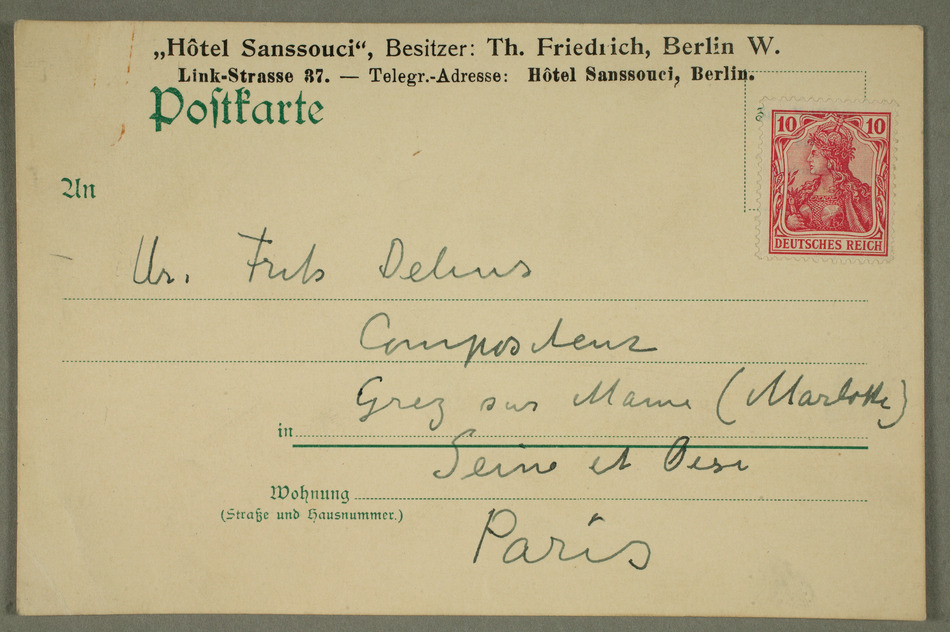 „Hôtel Sanssouci“, Besitzer: Th. Friedrich, Berlin W.
Link-Strasse 37. — Telegr.-Adresse: Hôtel Sanssouci, Berlin.
Postkarte
10 10
DEUTSCHES REICH
An
Mr. Fritz Delius
Compositeur
Grez sur Marne (Marlotte)
in
Seine et Oise
Wohnung
(Straße und Hausnummer.)
Paris